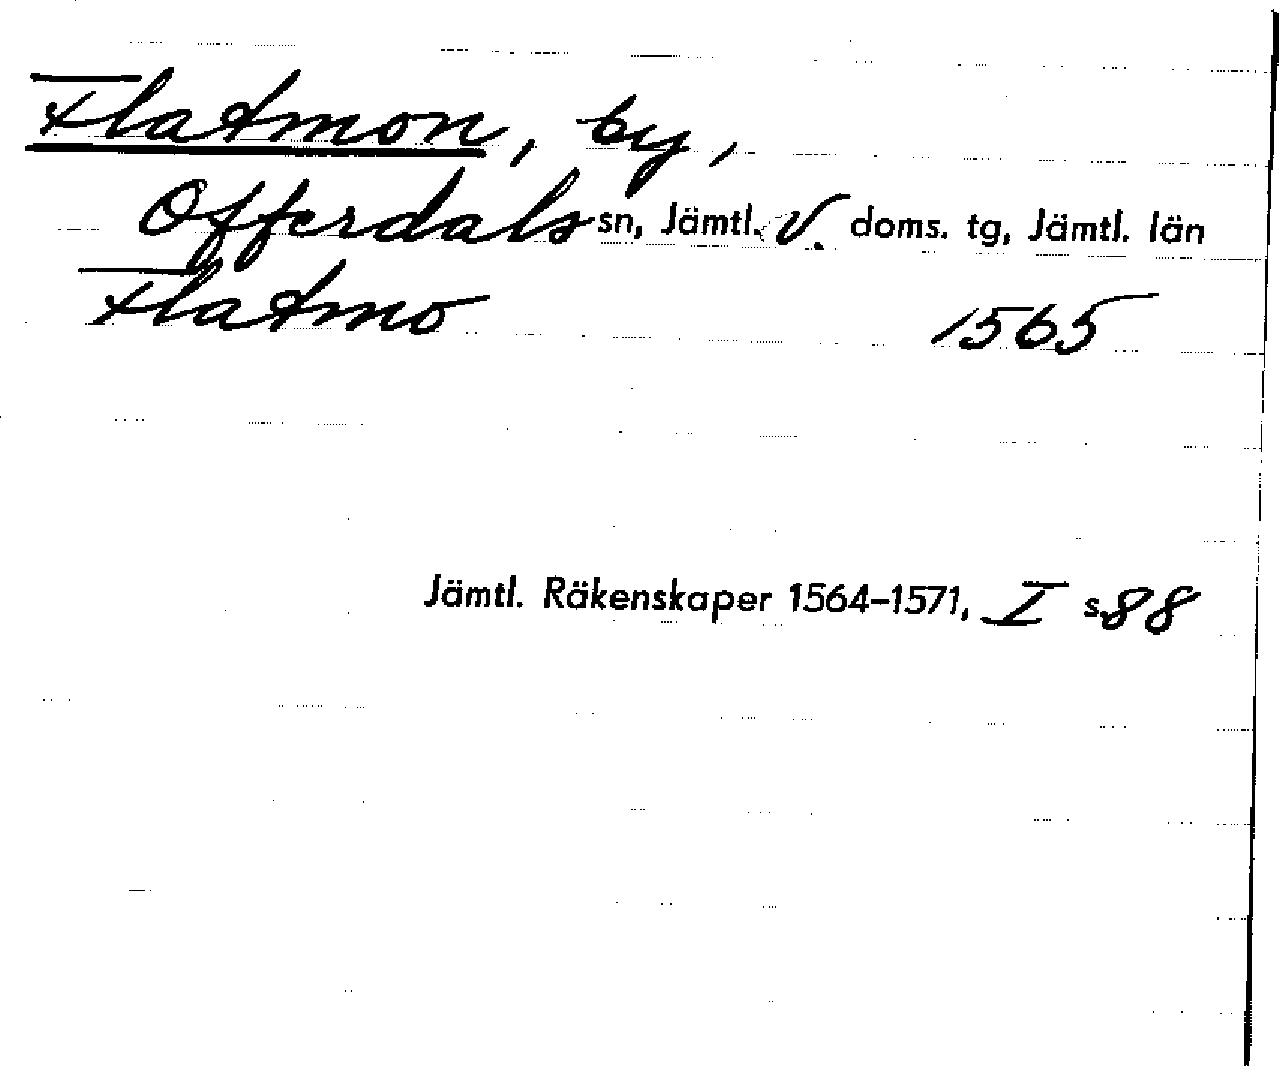 Flatmon, by,
Offerdals sn, Jämtl. V. doms. tg, Jämtl. län
Flatmo 1565
Jämtl. Räkenskaper 1564–1571, I s. 88